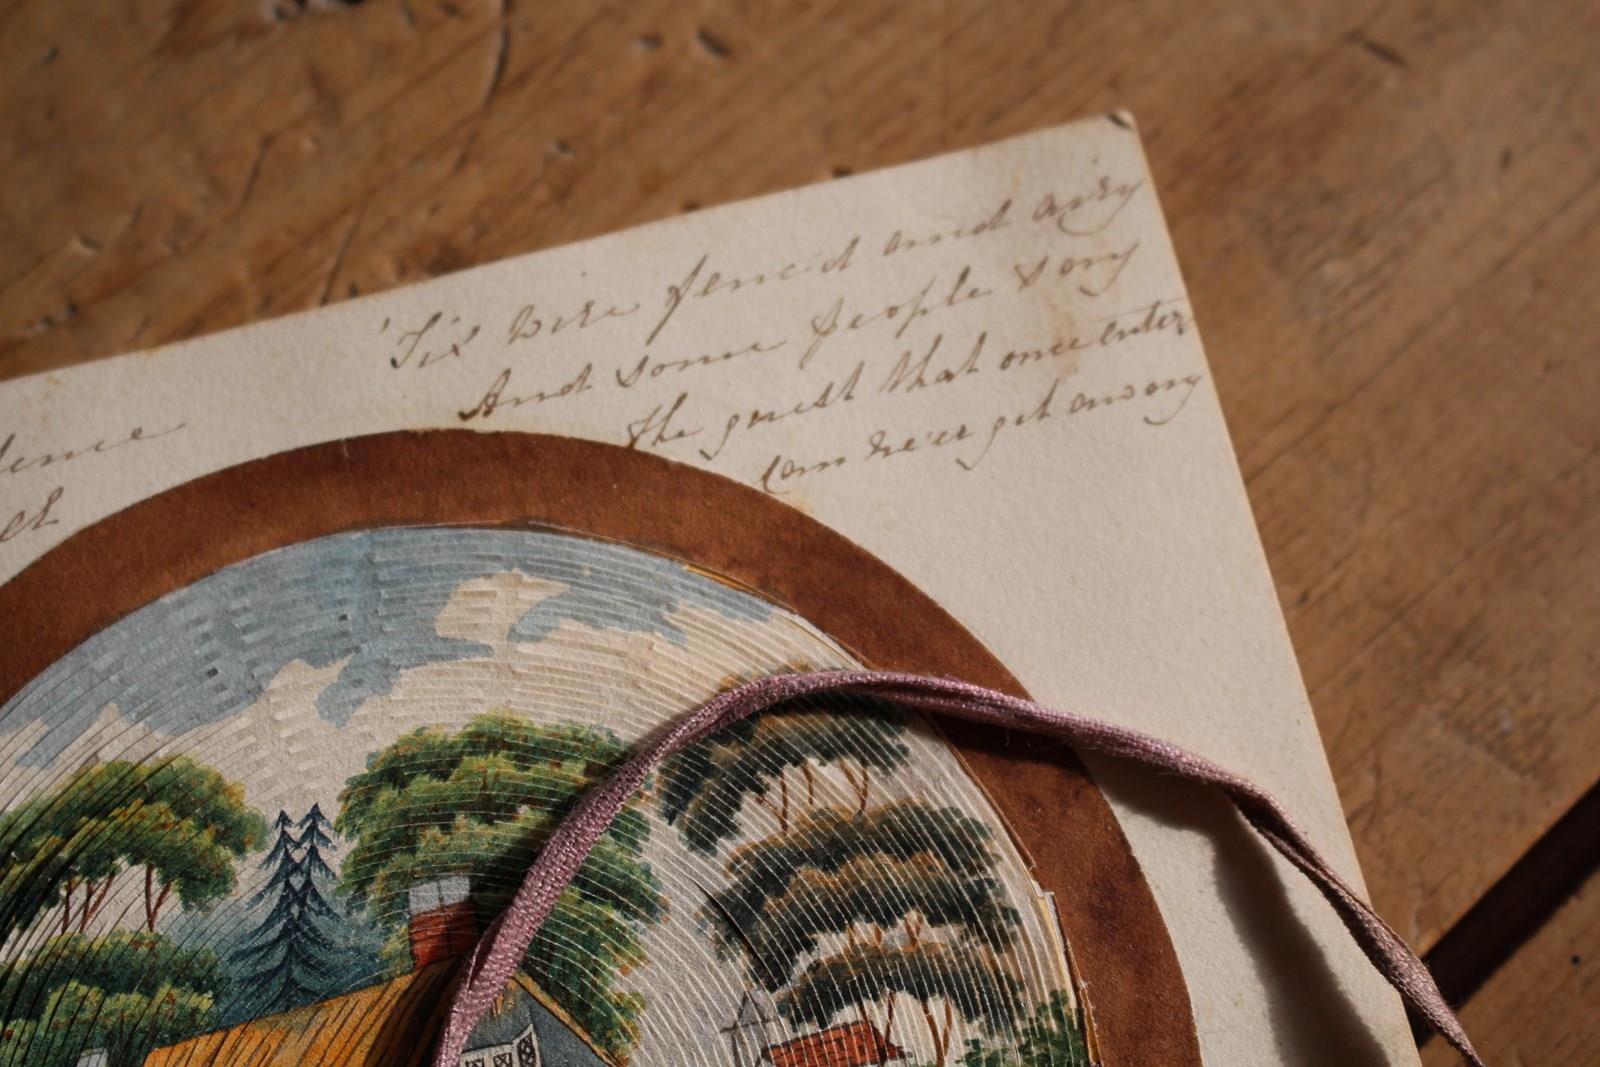 'Tis wire fenced and airy
And some people say
The guest that once enter
Can ne'er get away